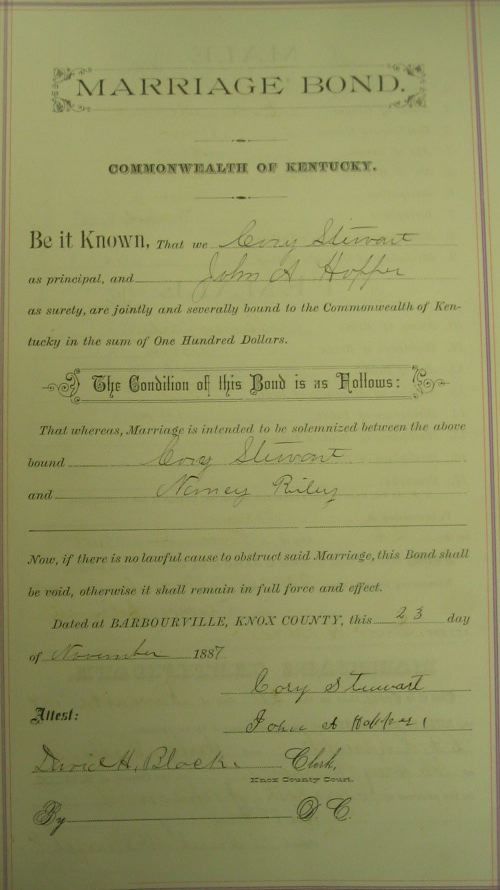 MARRIAGE BOND.
COMMONWEALTH OF KENTUCKY.
Be it Known, That we Cory Stewart
as principal, and John A Hopper
as surety, are jointly and severally bound to the Commonwealth of Ken-
tucky in the sum of One Hundred Dollars.
The Condition of this Bond is as Follows:
That whereas, Marriage is intended to be solemnized between the above
bound Cory Stewart
and Nancy Riley
Now, if there is no lawful cause to obstruct said Marriage, this Bond shall
be void, otherwise it shall remain in full force and effect.
Dated at BARBOURVILLE, KNOX COUNTY, this 23 day
of November 1887
Cory Stewart
Attest:
John A Hopper
David H. Black. Clerk,
Knox County Court.
By D C.